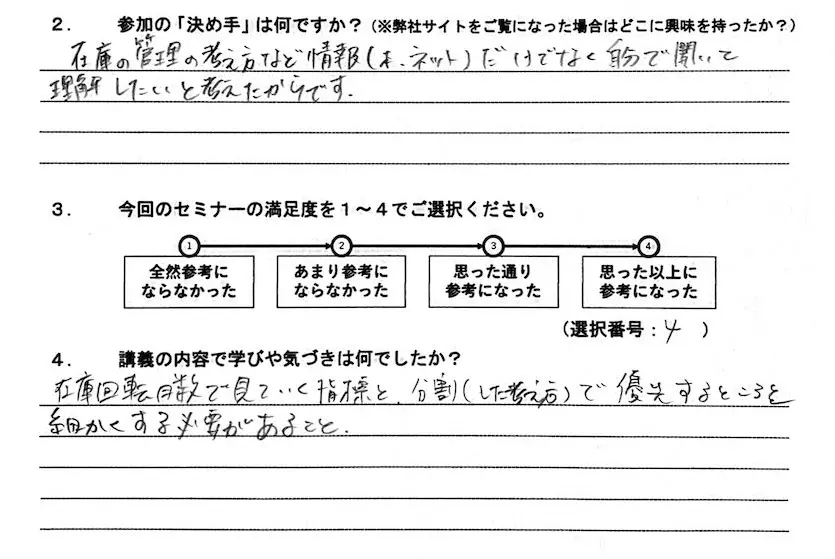 ２．　参加の「決め手」は何ですか？（※弊社サイトをご覧になった場合はどこに興味を持ったか？）
在庫の管理の考え方など情報（本、ネット）だけでなく自分で聞いて
理解したいと考えたからです.
３．　今回のセミナーの満足度を１～４でご選択ください。
1 2 3 4
全然参考に あまり参考に 思った通り 思った以上に
ならなかった ならなかった 参考になった 参考になった
（選択番号：4　）
４．　講義の内容で学びや気づきは何でしたか？
在庫回転月数で見ていく指標と、分割（した考え方）で優先するところを
細かくする必要があること.